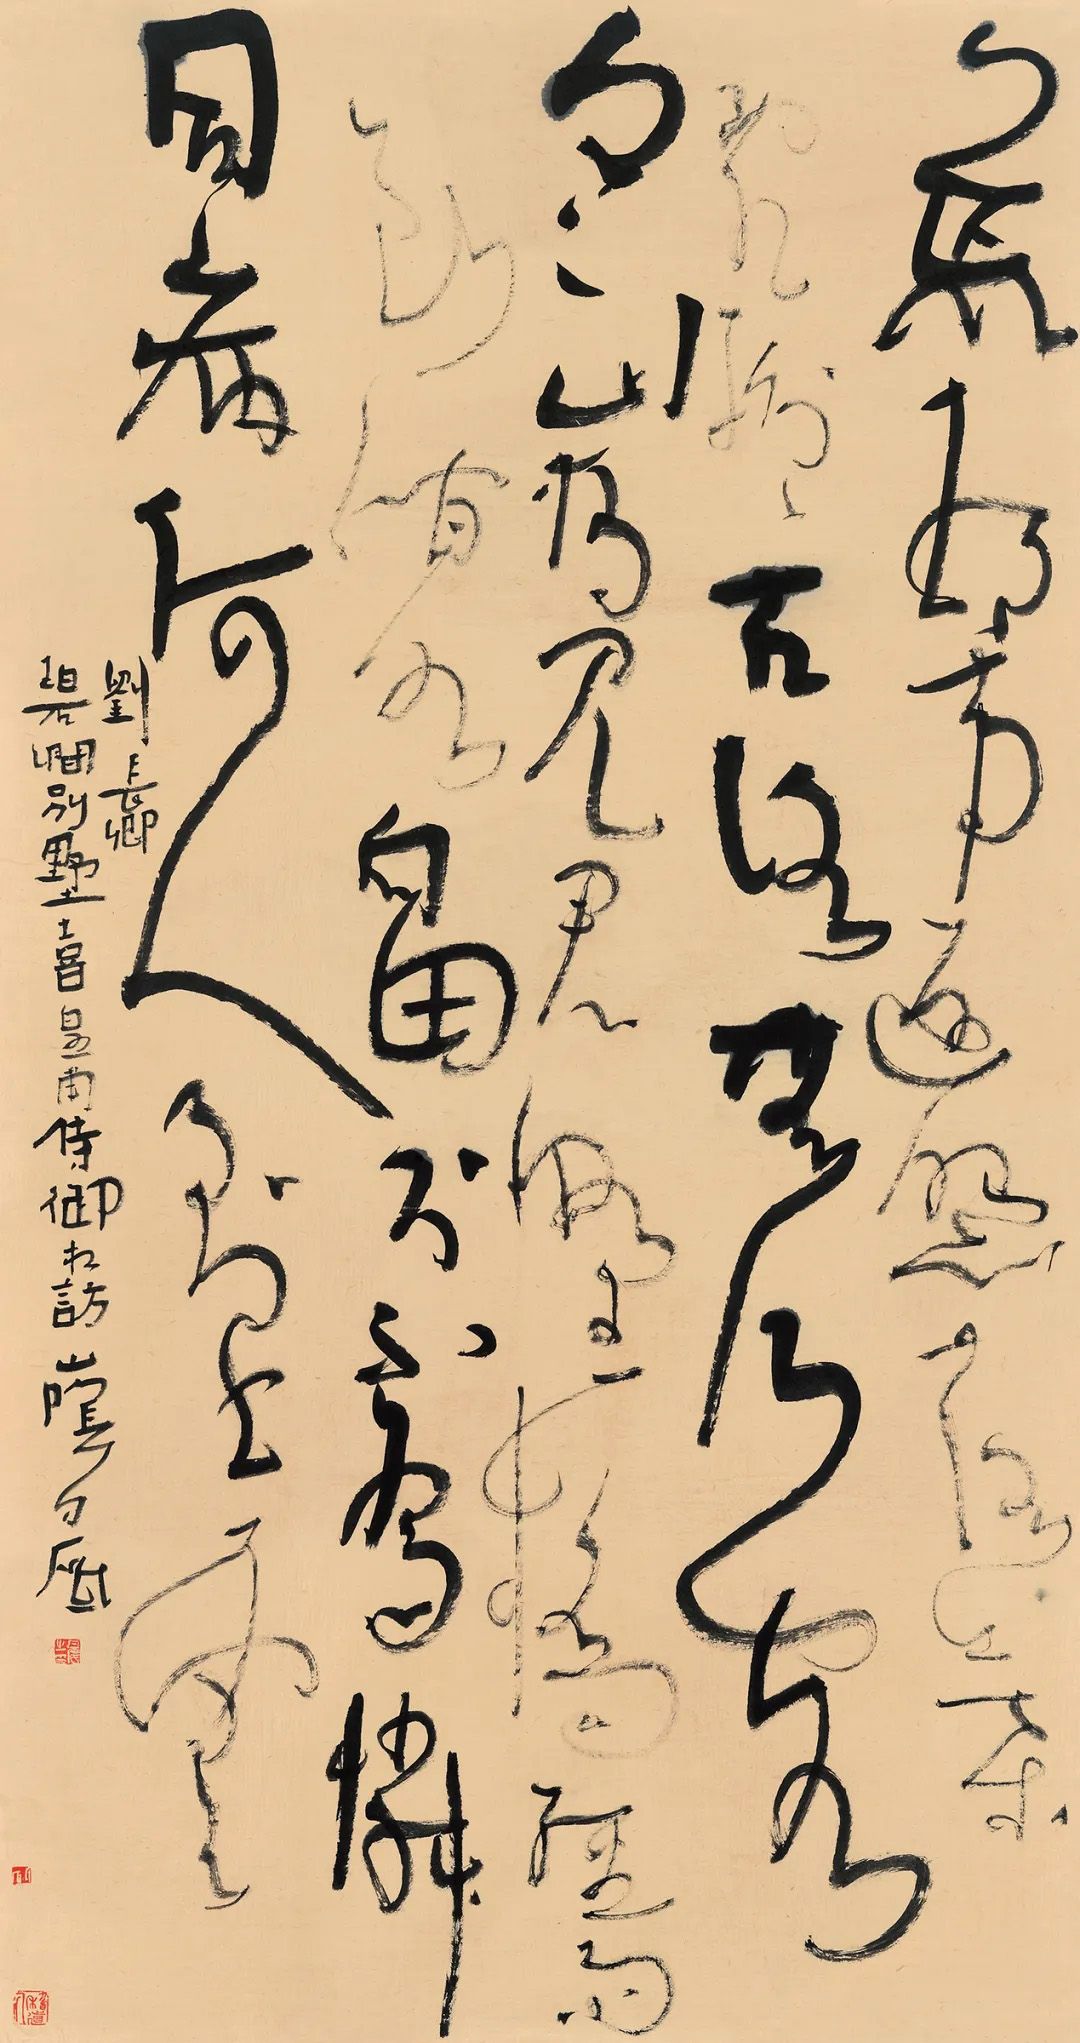 荒村帶返照落葉
亂紛紛古路無行客
寒山獨見君野橋經雨
斷澗水向田分不為憐
同病何人到白雲
劉長卿
碧澗別墅喜皇甫侍御相訪 山陰白砥